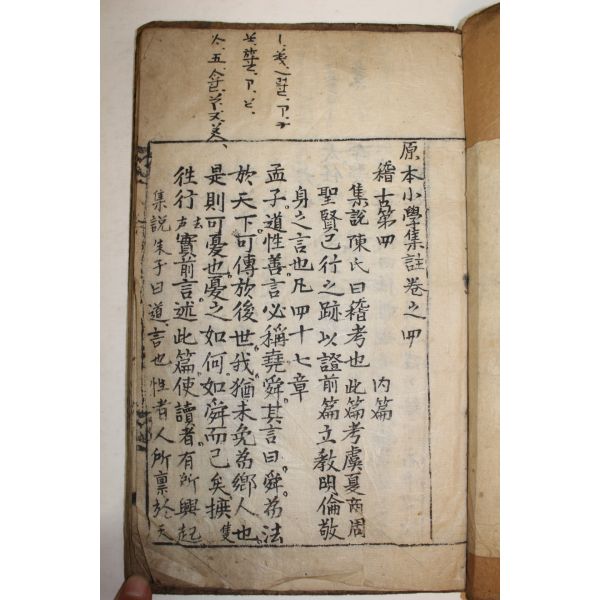 原本小學集註卷之四
稽古第四 內篇
集說陳氏曰稽考也此篇考虞夏商周
聖賢已行之跡以證前篇立教明倫敬
身之言也凡四十七章
孟子道性善言必稱堯舜其言曰舜爲法
於天下可傳於後世我猶未免爲鄉人也
是則可憂也憂之如何如舜而已矣摭隻
徃行去声實前言述此篇使讀者有所興起
集説朱子曰道言也性者人所禀於天